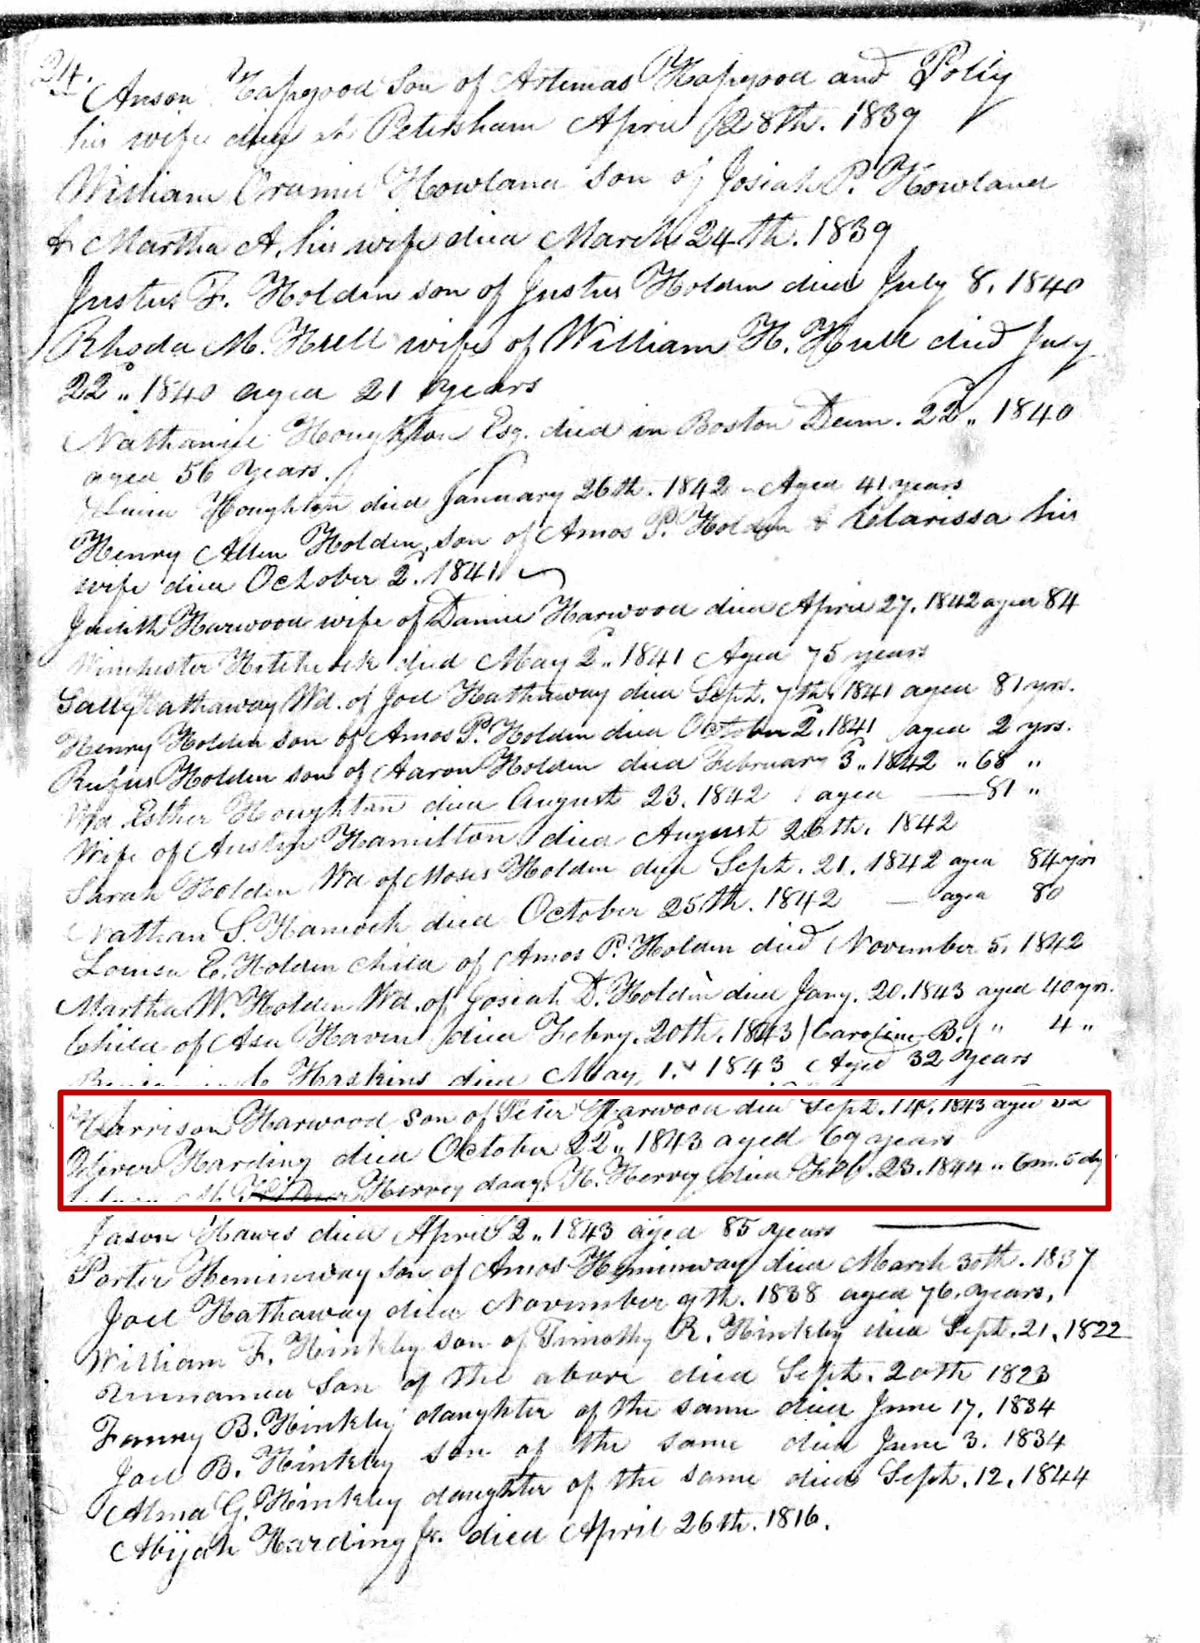 24.
Anson Hapgood son of Artemas Hapgood and Polly
his wife died at Petersham April 28th. 1839
William Howland son of Josiah P. Howland
& Martha A. his wife died March 24th. 1839
Justus F. Holden son of Justus Holden died July 8. 1840
Rhoda M. Hull wife of William H. Hull died July
22d.. 1840 aged 21 years
Nathaniel Houghton Esq. died in Boston Decm. 22d.. 1840
aged 56 years.
Houghton died January 26th. 1842 - Aged 41 years
Henry Allen Holden, son of Amos P. Holden & Clarissa his
wife died October 2d. 1841
Judith Harwood wife of Daniel Harwood died April 27. 1842 aged 84
Winchester Hitchcock died May 2d.. 1841 Aged 75 years
Sally Hathaway Wd. of Joel Hathaway died Sept. 7th. 1841 aged 81 yrs.
Henry Holden son of Amos P. Holden died October 2d. 1841 aged 2 yrs.
Rufus Holden son of Aaron Holden died February 3d.. 1842 .. 68 ..
Wd. Esther Houghton died August 23. 1842 aged — 81 "
Wife of Austin Hamilton died August 26th. 1842
Sarah Holden Wd of Moses Holden died Sept. 21. 1842 aged 84 yrs
Nathan S. died October 25th. 1842 — aged 80
Louisa E. Holden child of Amos P. Holden died November 5. 1842
Martha W. Holden Wd. of Josiah D. Holden died Jany. 20. 1843 aged 40 yrs.
Child of Asa Haven died Febry. 20th. 1843 (Caroline B.) " 4 "
Haskins died May 1. 1843 Aged 32 years
Harrison Harwood son of Peter Harwood died Sept. 14. 1843 aged 32
Oliver Harding died October 22d.. 1843 aged 69 years
Hervey daug. H. Hervey died Feb. 23. 1844 .. 6m. 5 dy
Jason Hawes died April 2.. 1843 aged 85 years
Porter Heminway son of Amos Heminway died March 30th. 1837
Joel Hathaway died November 9th. 1838 aged 76 years.
William F. Hinkley son of Timothy R. Hinkley died Sept. 21. 1822
Unnamed son of the above died Sept. 20th 1823
Fanny B. Hinkley daughter of the same died June 17. 1834
Joel B. Hinkley son of the same died June 3. 1834
Alma G. Hinkley daughter of the same died Sept. 12. 1844
Abijah Harding Jr. died April 26th. 1816.